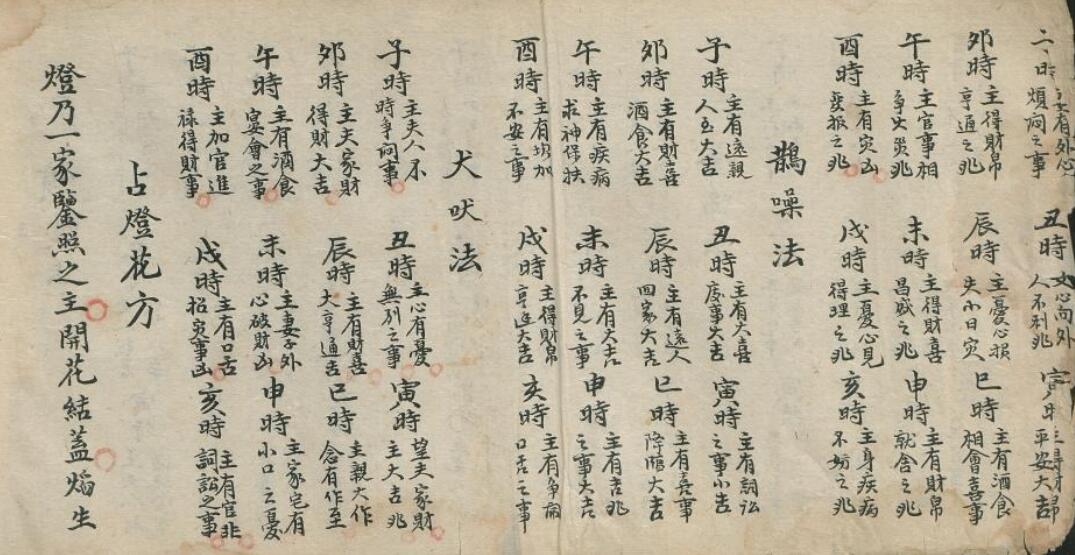 主有外心煩悶之事 丑時 女心向外人不利兆 寅時 主得財帛平安大吉
夘時 主得財帛亨通之兆 辰時 主憂心損失小日灾 巳時 主有酒食相會喜事
午時 主官事相争火災兆 未時 主得財喜昌盛之兆 申時 主有財帛就舍之兆
酉時 主有灾凶之兆 戌時 主憂心見得理之兆 亥時 主身疾病不妨之兆
鵲噪法
子時 主有遠親人至大吉 丑時 主有大喜慶事大吉 寅時 主有詞訟之事小吉
夘時 主有財喜酒食大吉 辰時 主有遠人回家大吉 巳時 主有喜事降臨大吉
午時 主有疾病求神保扶 未時 主有大吉不見之事 申時 主有吉兆之事大吉
酉時 主有加不安之事 戌時 主得財帛大吉 亥時 主有争鬧口舌之事
犬吠法
子時 主夫人不時争鬧事 丑時 主心有憂無別之事 寅時 望夫家財主大吉兆
夘時 主夫家財得財大吉 辰時 主有財喜大亨通吉 巳時 主親大作念有作至
午時 主有酒食宴會之事 未時 主妻子外心破財凶 申時 主家宅有小口之憂
酉時 主加官進禄得財事 戌時 主有口舌招灾事凶 亥時 主有官非詞訟之事
占燈花方
燈乃一家鑒照之主開花結蓋焰生